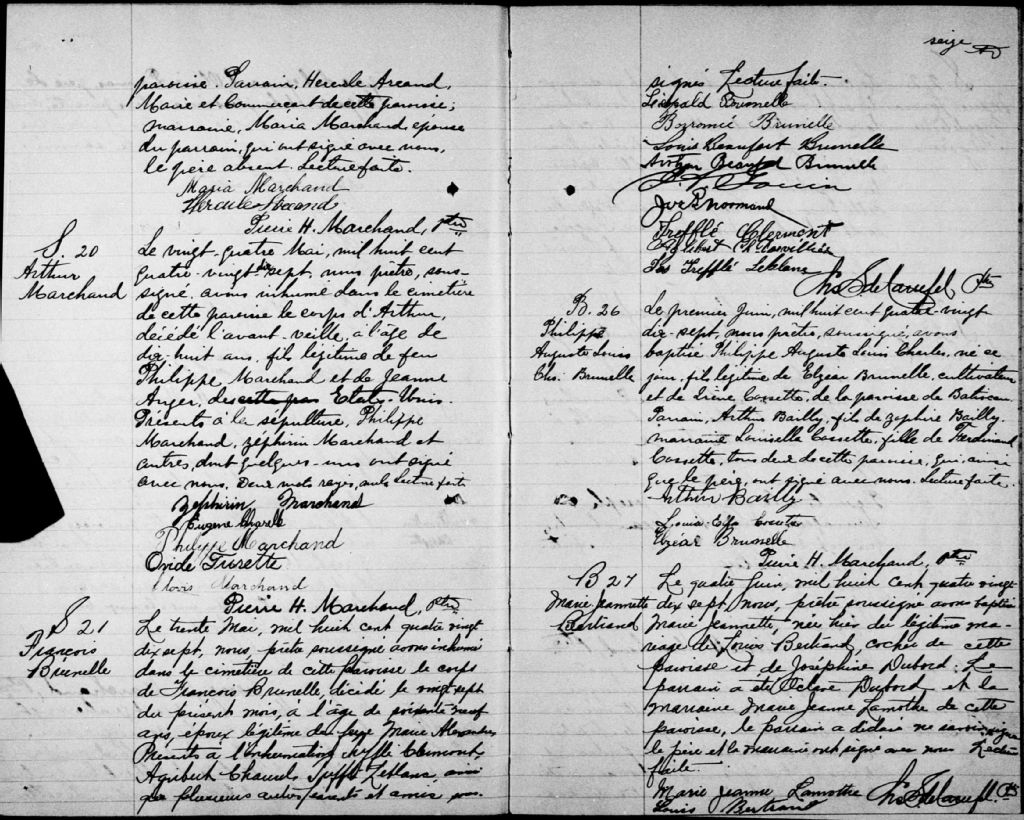 paroisse. Parrain, Hercule Arcand,
Maire et Commerçant de cette paroisse;
marraine, Maria Marchand, épouse
du parrain, qui ont signé avec nous,
le père absent. Lecture faite.
Maria Marchand
Hercule Arcand
Pierre H. Marchand, Ptre
S. 20
Arthur
Marchand
Le vingt-quatre Mai, mil huit cent
quatre-vingt dix sept, nous prêtre, sous-
signé, avons inhumé dans le cimetière
de cette paroisse le corps d'Arthur,
décédé l'avant-veille, à l'âge de
dix-huit ans, fils légitime de feu
Philippe Marchand et de Jeanne
Auger, des cette par Etats-Unis.
Présents à la sépulture, Philippe
Marchand, zéphirin Marchand et
autres, dont quelques-uns ont signé
avec nous. Deux mots rayés, nuls Lecture faite
Zephirin Marchand
Eugene
Philippe Marchand
Onde
Clovis Marchand
Pierre H. Marchand, Ptre
S 21
François
Brunelle
Le trente Mai, mil huit cent quatre vingt
dix sept, nous, prêtre soussigné avons inhumé
dans le cimetière de cette Paroisse le corps
de François Brunelle, décédé le vingt sept
du présent mois, à l'âge de soixante neuf
ans, époux légitime de Marie
Présents à l'inhumation, Trefflé Clermont,
Trefflé Leblanc, ainsi
que plusieurs autres parents et amis
seize
signés Lecture faite.
Léopold Brunelle
Borromé Brunelle
Louis Beaufort Brunelle
Brunelle
Normand
Trefflé Clermont
Jos Trefflé Leblanc
Ptre
B. 26
Philippe
Auguste Louis
Chs. Brunelle
Le premier Juin, mil huit cent quatre-vingt
dix-sept, nous prêtre, soussigné, avons
baptisé Philippe Auguste Louis Charles, né ce
jour, fils légitime de Elzéar Brunelle, cultivateur
et de Irène Cossette, de la paroisse de Batiscan.
Parrain, Arthur Bailly, fils de zéphir Bailly,
marraine Louisella Cossette, fille de Ferdinand
Cossette, tous deux de cette paroisse, qui, ainsi
que le père, ont signé avec nous. Lecture faite.
Arthur Bailly
Elzéar Brunelle
Pierre H. Marchand, Ptre
B 27
Marie Jeannette
Bertrand
Le quatre Juin, mil huit cent quatre vingt
dix sept, nous, prêtre soussigné avons baptisé
Marie Jeannette, née hier du légitime ma-
riage de Louis Bertrand, cocher de cette
paroisse et de Joséphine Dubord. Le
parrain a été Dubord et la
marraine Marie Jeanne Lamothe de cette
paroisse, le parrain a déclaré ne savoir signer
le père et la marraine ont signé avec nous Lecture
faite.
Marie Jeanne Lamothe
Louis Bertrand